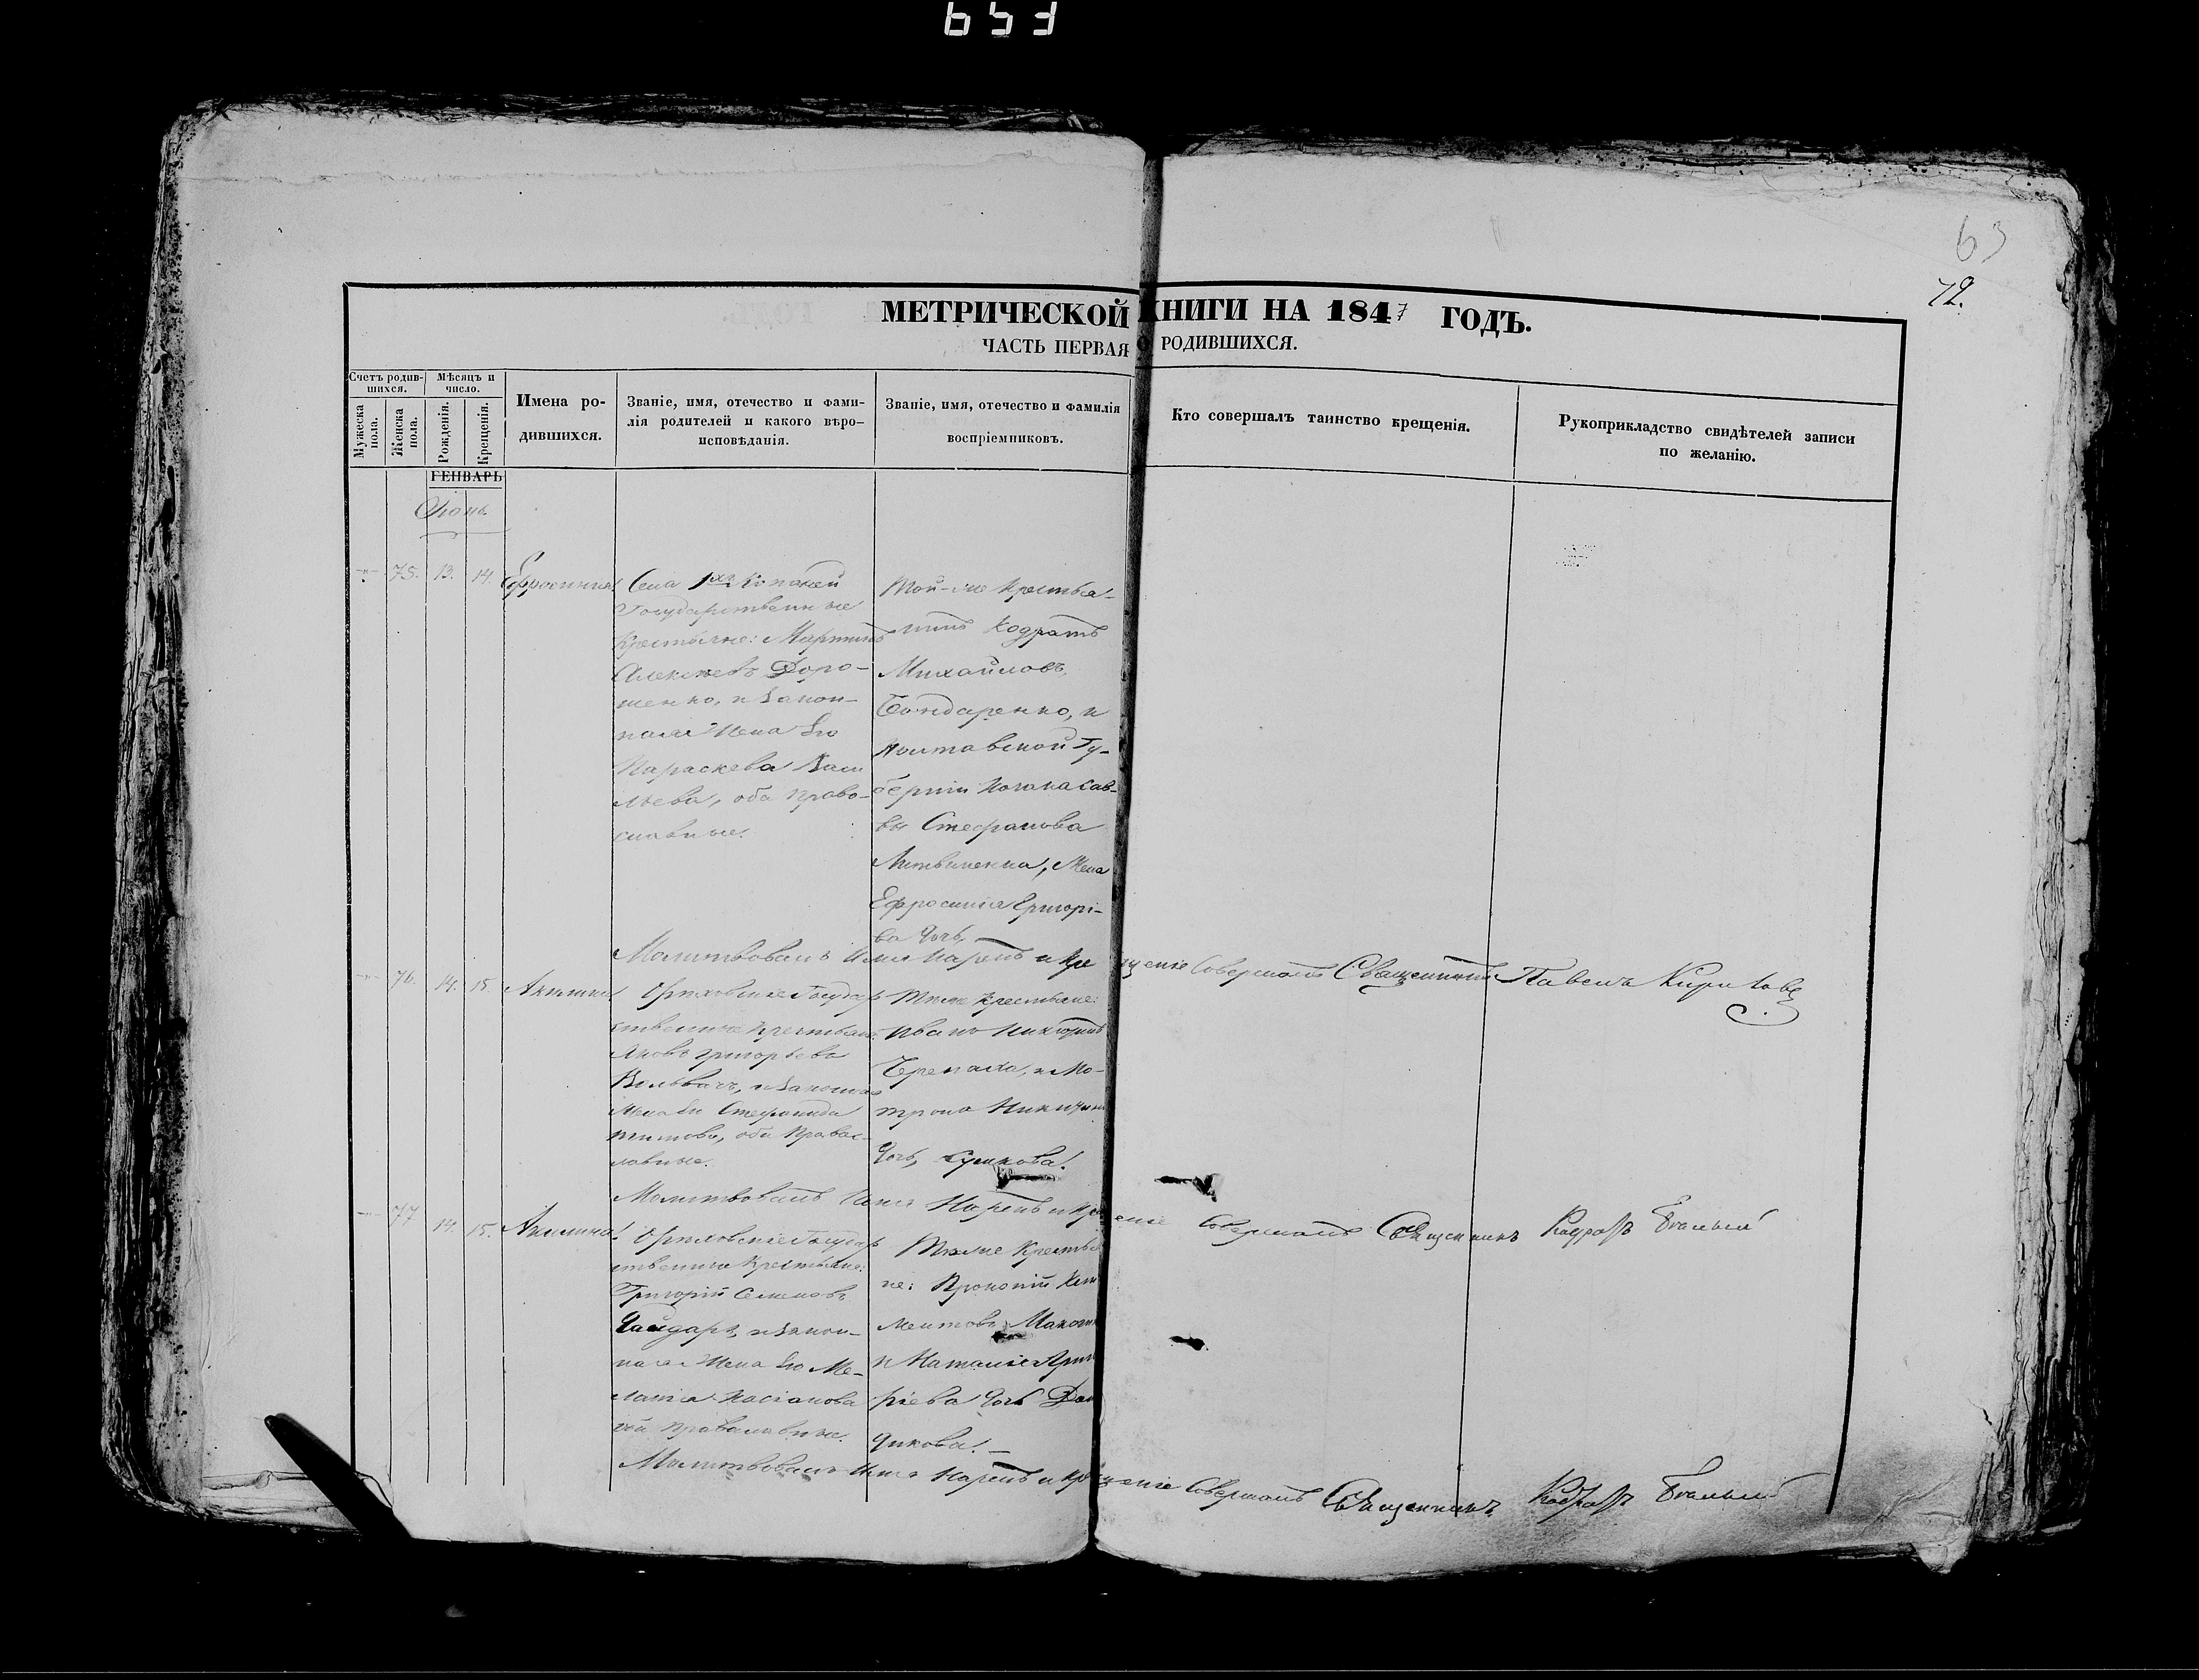 653
63
72.
МЕТРИЧЕСКОЙ КНИГИ НА 1847 ГОДЪ.
ЧАСТЬ ПЕРВАЯ О РОДИВШИХСЯ.
Счетъ родив-
шихся.
Мужеска пола.
Женска пола.
Мѣсяцъ и
число.
Рожденія.
Крещенія.
Имена ро-
дившихся.
Званіе, имя, отечество и фами-
лія родителей и какого вѣро-
исповѣданія.
Званіе, имя, отечество и фамилія
воспріемниковъ.
Кто совершалъ таинство крещенія.
Рукоприкладство свидѣтелей записи
по желанію.
ГЕНВАРЬ
Іюнь
75. 13. 14. Ефросинія
Села 1хъ Копаней
Государственные
Крестьяне: Мартинъ
Алексѣевъ Доро-
шенко, и Закон-
ная Жена Его
Параскева Васи
льева, оба право-
славные.
Той-же Крестья-
нинъ Кодратъ
Михайловъ
Бондаренко, и
Полтавской Гу-
берніи Козака Сав-
вы Стефанова
Литвиненка, Жена
Ефросинія Григорі-
ва дочь.
Молитвовалъ Имя Нарекъ и Крещеніе Совершалъ Священникъ Павелъ
76. 14. 15. Акилина
Орѣховскіе Государ
ственные Крестьяне:
Яковъ Григорьевъ
и Законная
Жена Его Стефанида
оба Правос-
лавные.
Тѣже Крестьяне:
Иванъ
Черепаха, и Мо-
трона
дочь,
Молитвовалъ Имя Нарекъ и Крещеніе Совершалъ Священникъ Кодратъ Бѣлый
77 14. 15. Акилина
Орѣховскіе Государ
ственные Крестьяне:
Григорій Семеновъ
Гайдаръ, и Закон-
ная Жена Его Ме-
ланія Касіанова
оба Православные.
Тѣже Крестья
не: Прокопій Кли
ментовъ
и Наталія Григо
ріева дочь
чикова. —
Молитвовалъ Имя Нарекъ и Крещеніе Совершалъ Священникъ Кодратъ Бѣлый